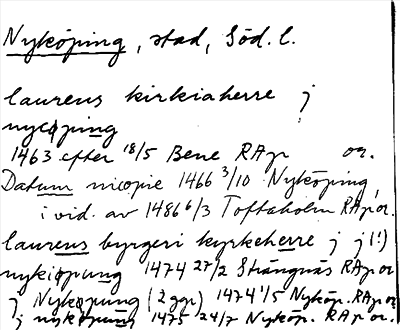 Nyköping, stad, Söd. l.
laurens kirkiaherre j
nycöping
1463 efter 18/5 Bene RAp or.
Datum nicopie 1466 3/10 Nyköping,
i vid. av 1486 6/3 Toftaholm RAp or.
laurens byrgeri kyrkeherre j j(!)
nykiöpung 1474 27/2 Strängnäs RAp or
j Nyköpung (2 ggr) 1474 1/5 Nyköp. RAp or
j nyköpung 1475 24/7 Nyköp. RAp or.